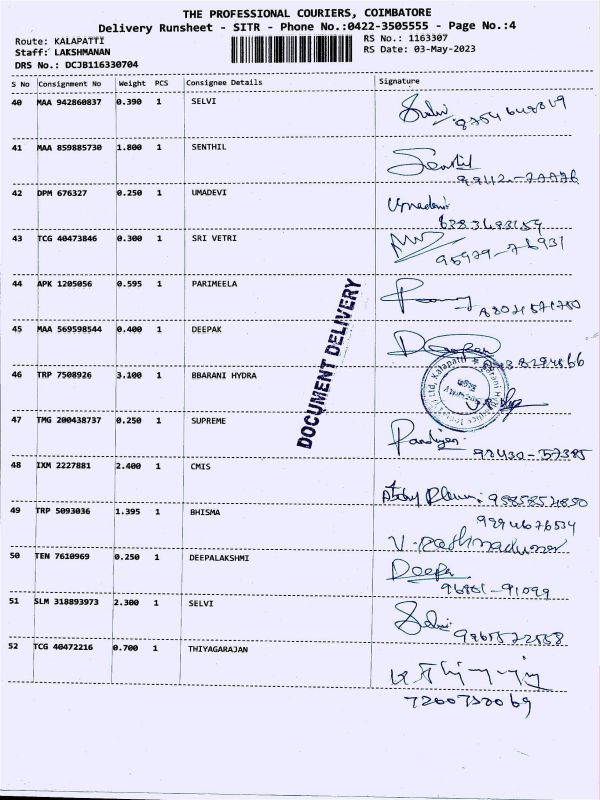 THE PROFESSIONAL COURIERS, COIMBATORE
Delivery Runsheet - SITR - Phone No.:0422-3505555 - Page No.:4
Route: KALAPATTI
RS No.: 1163307
Staff: LAKSHMANAN
RS Date: 03-May-2023
DRS No.: DCJB116330704
S No Consignment No Weight PCS Consignee Details Signature
40 MAA 942860837 0.390 1 SELVI Selvi
41 MAA 859885730 1.800 1 SENTHIL Senthil
42 DPM 676327 0.250 1 UMADEVI Umadevi
43 TCG 40473846 0.300 1 SRI VETRI
95979-76931
44 APK 1205056 0.595 1 PARIMEELA
45 MAA 569598544 0.400 1 DEEPAK Deepak
46 TRP 7508926 3.100 1 BBARANI HYDRA
47 TMG 200438737 0.250 1 SUPREME Pandiyan
48 IXM 2227881 2.400 1 CMIS
49 TRP 5093036 1.395 1 BHISMA
9994676534
50 TEN 7610969 0.250 1 DEEPALAKSHMI Deepa
51 SLM 318893973 2.300 1 SELVI Selvi
52 TCG 40472216 0.700 1 THIYAGARAJAN
7200750069
DOCUMENT DELIVERY